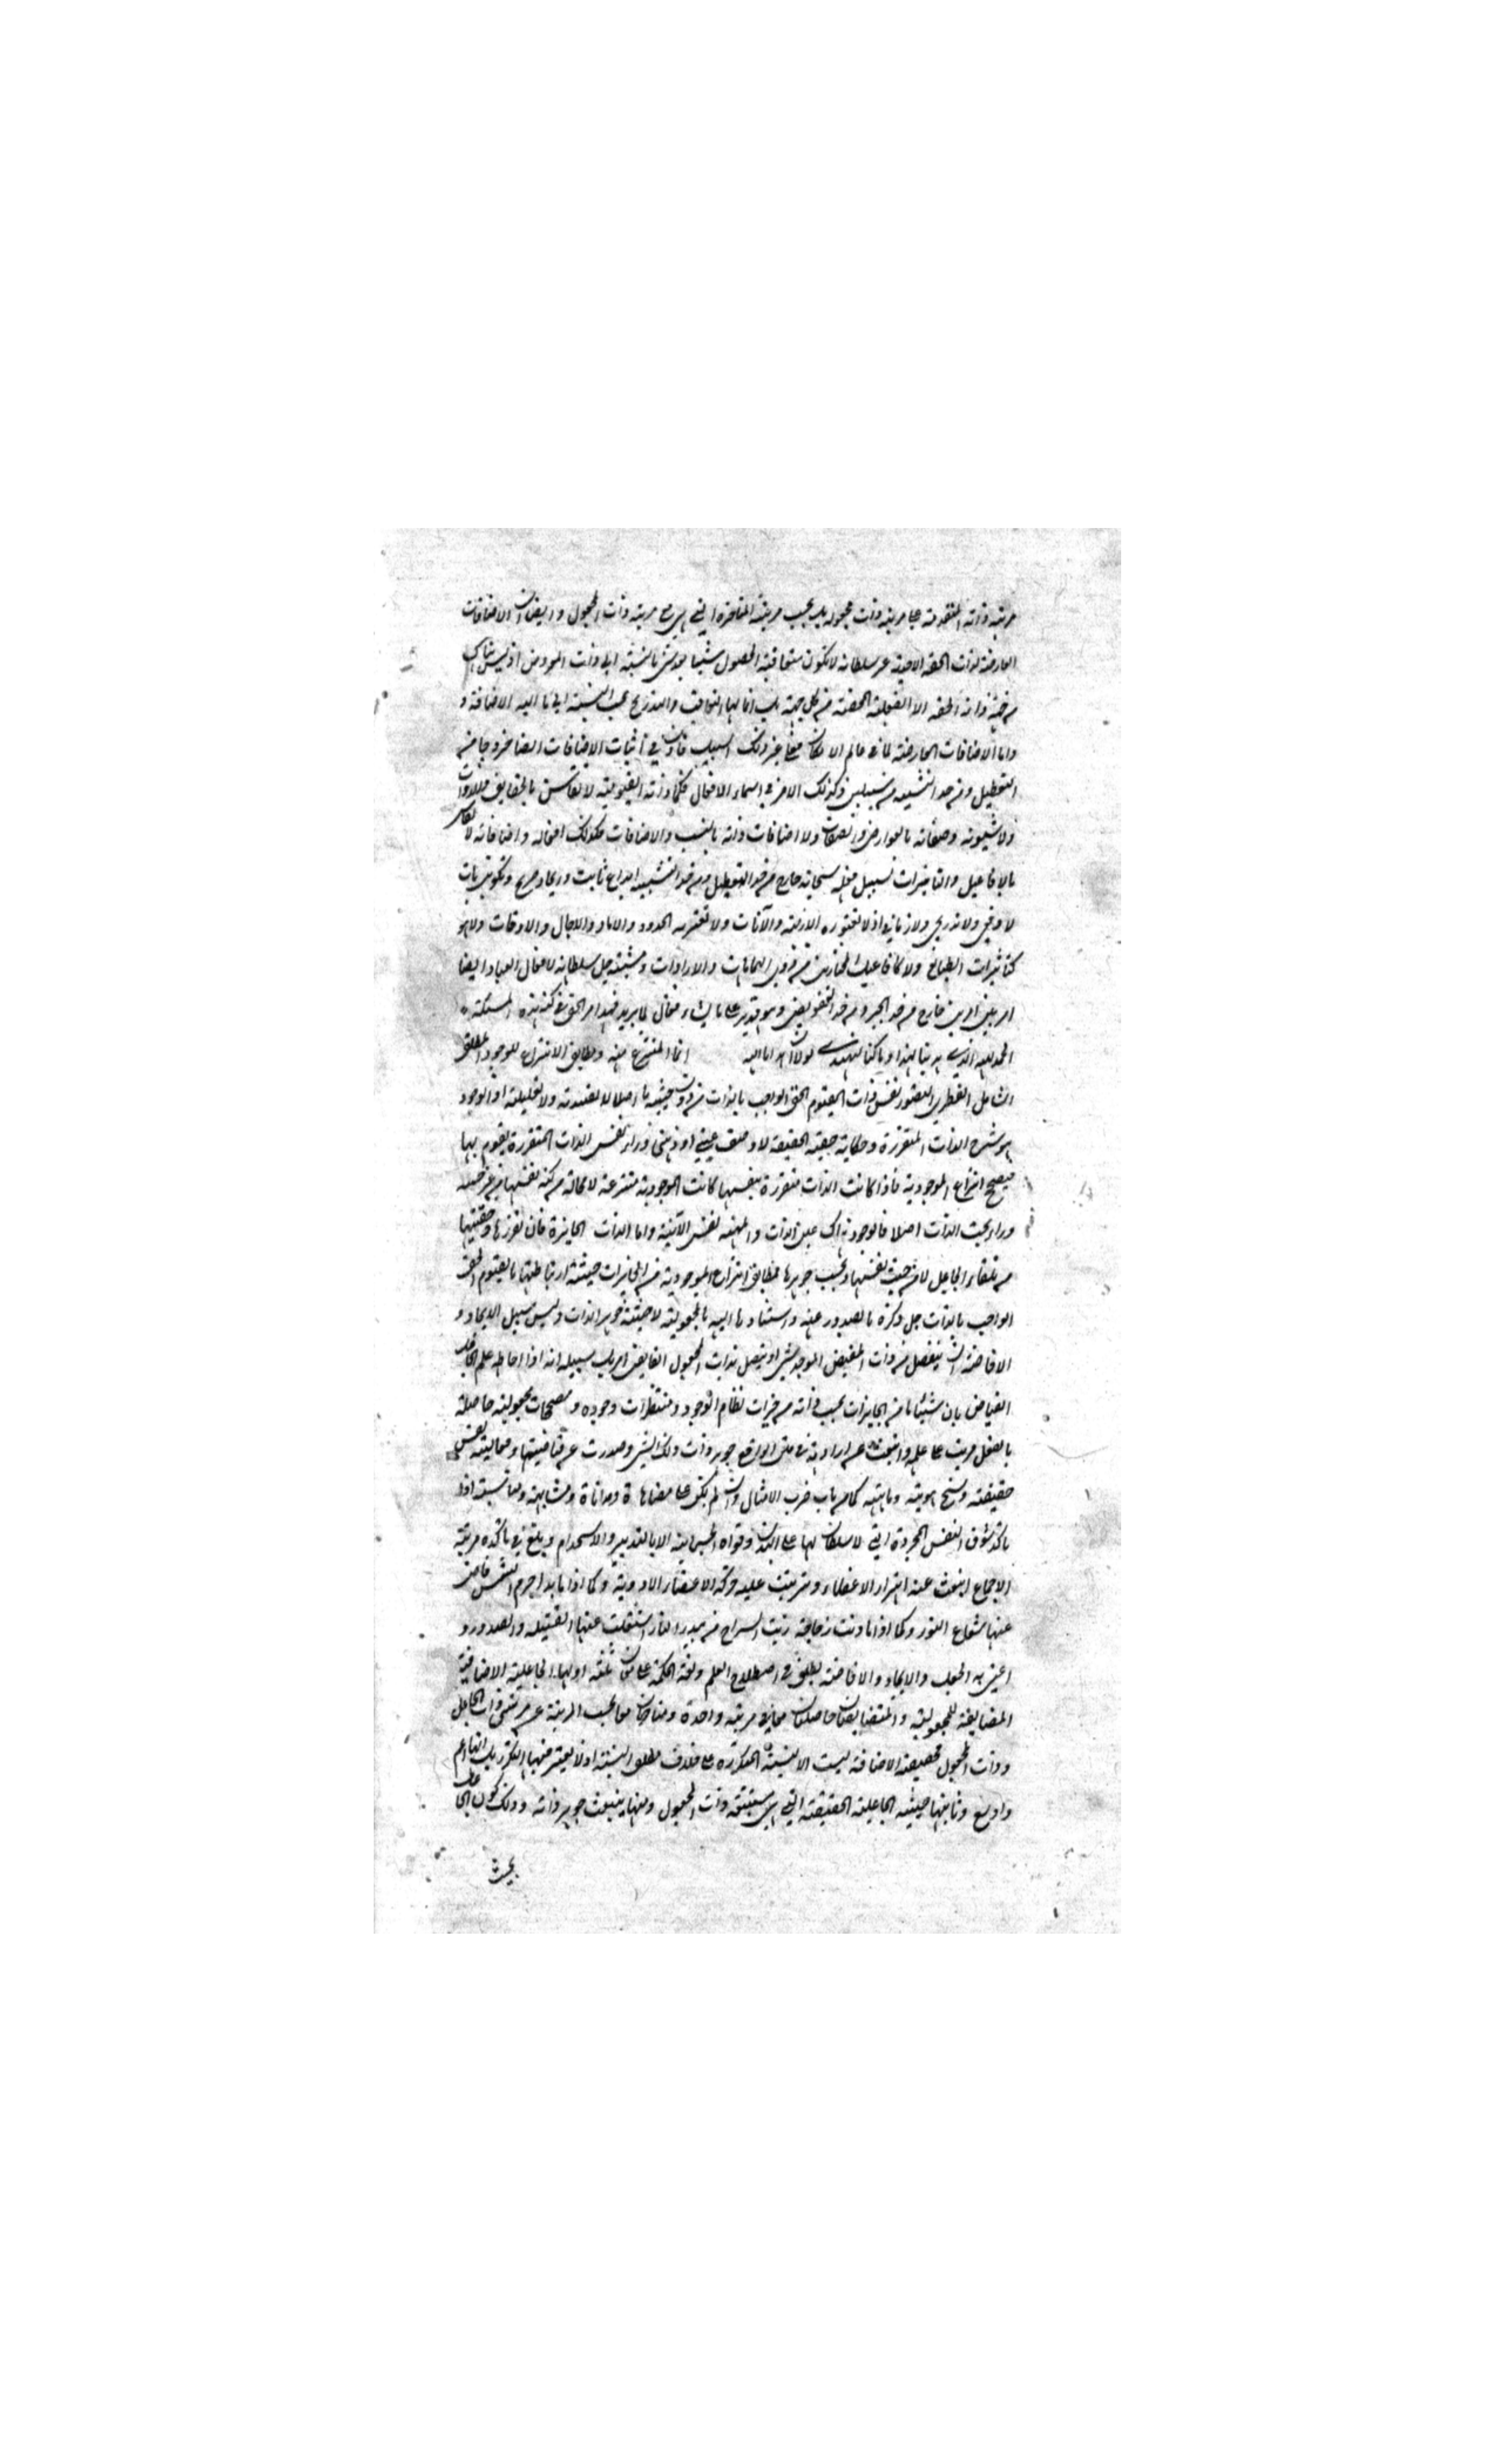 مرتبة ذاته المتقدمة على مرتبة ذات مجعوله بل بحسب مرتبته المتأخرة التي هي مع مرتبة ذات المجعول وايضا ان الاضافات
العارضة لذات الحقة الاحدية عز سلطانه لا تكون متعاقبة الحصول شيئا بعد شيء بالنسبة الى ذات المعروض اذ ليس
ذاته الحقة الا الفعلية المحضة من كل جهة بل انما لها التعاقب والتدريج بحسب النسبة الى ما اليه الاضافة و
واما الاضافات العارضة لما في عالم الامكان فعلى غير ذلك السبيل فاذن في اثبات الاضافات ايضا خروجا من
التعطيل ومن حد التشبيه من سبيلين وكذلك الامر في اسماء الافعال فكما ذاته القيومية لا تقاس بالحقايق والذوات
ولا شيونه وصفاته بالعوارض والصفات ولا اضافات ذاته بالنسب والاضافات فكذلك افعاله وافاضاته لا تقاس
بالافاعيل والتاثيرات فسبيل فعله سبحانه خارج من حد التعطيل ومن حد التشبيه ابداع ثابت وايجاد صريح وتكوين بات
لا دفعي ولا تدريجي ولا زماني اذ لا تعتوره الازمنة والآنات ولا تعتريه الحدود والاماد والآجال والاوقات ولا هو
كتاثيرات الطبايع ولا كافاعيل المختارين من ذوي الهمامات والارادات ومشيته جل سلطانه لافعال العباد ايضا
امر بين امرين خارج من حد الجبر ومن حد التفويض وهو قدير على ما يشاء فعال لما يريد فهذا مر الحق في كنه هذه المسئلة
الحمد لله الذي هدينا لهذا وما كنا لنهتدي لولا ان هدانا الله انما المنتزع منه ومطابق الانتزاع للوجود المطلق
الشامل الفطري التصور نفس ذات القيوم الحق الواجب بالذات من دون حيثية ما اصلا لا تقييدية ولا تعليلية اذ الوجود
هو شرح الذات المتقررة وحكاية حقية الحقيقة لا وصف عيني او ذهني وراء نفس الذات المتقررة يقوم بها
فيصحح انتزاع الموجودية فاذا كانت الذات متقررة بنفسها كانت الموجودية منتزعة لا محالة من كنه نفسها من غير حيثية
وراء بحت الذات اصلا فالوجود هناك عين الذات والمهية نفس الآنية واما الذات الجايزة فان تقررها وحقيتها
من تلقاء الجاعل لا من حيث نفسها وبحسب جوهرها فمطابق انتزاع الموجودية من الجايزات حيثية ارتباطها بالقيوم الحق
الواجب بالذات جل ذكره بالصدور عنه واستنادها اليه بالمجعولية لا حيثية جوهر الذات وليس سبيل الايجاد و
الافاضة ان ينفصل من ذات المفيض الموجد شيء او يتصل بذات المجعول الفايض امر بل سبيله انه اذا احاط علم الجاعل
الفياض بان شيئا ما من الجايزات بحسب ذاته من خيرات نظام الوجود ومنتظرات وجوده ومصححات مجعوليته حاصلة
بالفعل فرتب على علمه وانبعث عن ارادته في متن الواقع جوهر ذات ذلك الشيء وصدرت عن فياضيتها وفعاليته نفس
حقيقته وسنخ هويته وماهيته كما من باب ضرب الامثال وان لم يكن على مضاهاة ومداناة ومشابهة ومناسبة اذا
تاكد شوق النفس المجردة التي لا سلطان لها على البدن وقواه الجسمانية الا بالتدبير والاستخدام وبلغ في تاكده مرتبة
الاجماع انبعث عنه اهتزاز الاعضاء وترتبت عليه حركة الاعضاء الادوية وكما اذا ما بدا جرم الشمس فاض
عنها شعاع النور وكما اذا ما دنت زجاجة زيت السراج من مبدء النار اشتعلت عنها الفتيلة والصدور و
اعني به الجعل والايجاد والافاضة يطلق في اصطلاح العلم ولغة الحكمة على معان ثلثة اولها الجاعلية الاضافية
المضايفة للمجعولية والمتضايفان حاصلان معا في مرتبة واحدة ومتأخران معا بحسب المرتبة عن مرتبتي ذات الجاعل
وذات المجعول فحقيقة الاضافة ليست الا النسبة المتكررة على خلاف مطلق النسبة اذ لا يعتبر فيها التكرر بل انها اعم
واوسع وثانيتها حيثية الجاعلية الحقيقية التي هي مستتبعة ذات المجعول وعنها ينبعث جوهر ذاته وذلك كون الجاعل
بحيث